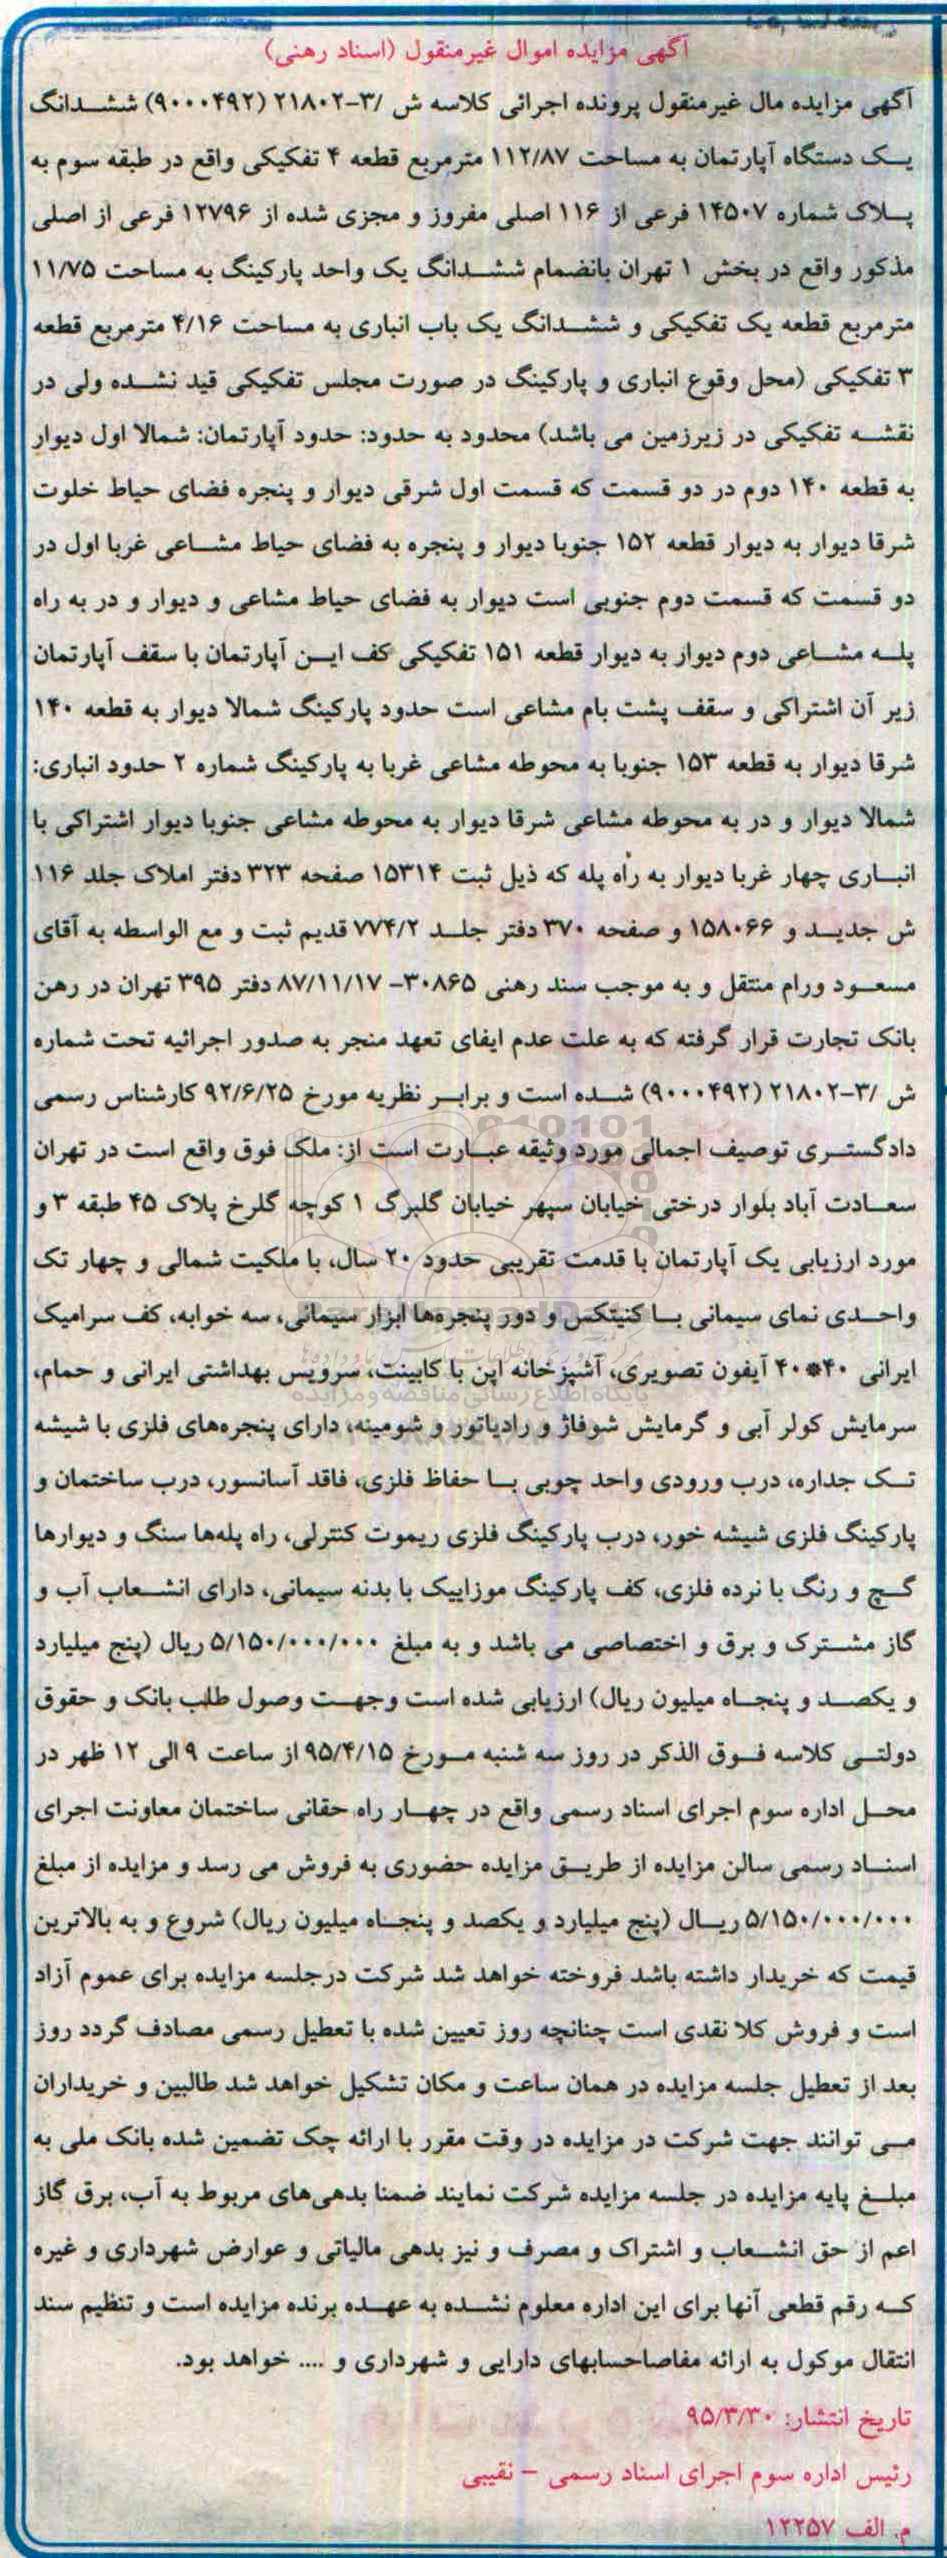 آگهی مزایده اموال غیرمنقول (اسناد رهنی)
آگهی مزایده مال غیرمنقول پرونده اجرائی کلاسه ش /۳-۲۱۸۰۲ (۹۰۰۰۴۹۲) ششدانگ
یک دستگاه آپارتمان به مساحت ۱۱۲/۸۷ مترمربع قطعه ۴ تفکیکی واقع در طبقه سوم به
پلاک شماره ۱۴۵۰۷ فرعی از ۱۱۶ اصلی مفروز و مجزی شده از ۱۲۷۹۶ فرعی از اصلی
مذکور واقع در بخش ۱ تهران بانضمام ششدانگ یک واحد پارکینگ به مساحت ۱۱/۷۵
مترمربع قطعه یک تفکیکی و ششدانگ یک باب انباری به مساحت ۴/۱۶ مترمربع قطعه
۳ تفکیکی (محل وقوع انباری و پارکینگ در صورت مجلس تفکیکی قید نشده ولی در
نقشه تفکیکی در زیرزمین می باشد) محدود به حدود: حدود آپارتمان: شمالا اول دیوار
به قطعه ۱۴۰ دوم در دو قسمت که قسمت اول شرقی دیوار و پنجره فضای حیاط خلوت
شرقا دیوار به دیوار قطعه ۱۵۲ جنوبا دیوار و پنجره به فضای حیاط مشاعی غربا اول در
دو قسمت که قسمت دوم جنوبی است دیوار به فضای حیاط مشاعی و دیوار و در به راه
پله مشاعی دوم دیوار به دیوار قطعه ۱۵۱ تفکیکی کف این آپارتمان با سقف آپارتمان
زیر آن اشتراکی و سقف پشت بام مشاعی است حدود پارکینگ شمالا دیوار به قطعه ۱۴۰
شرقا دیوار به قطعه ۱۵۳ جنوبا به محوطه مشاعی غربا به پارکینگ شماره ۲ حدود انباری:
شمالا دیوار و در به محوطه مشاعی شرقا دیوار به محوطه مشاعی جنوبا دیوار اشتراکی با
انباری چهار غربا دیوار به راه پله که ذیل ثبت ۱۵۳۱۴ صفحه ۳۲۳ دفتر املاک جلد ۱۱۶
ش جدید و ۱۵۸۰۶۶ و صفحه ۳۷۰ دفتر جلد ۷۷۴/۲ قدیم ثبت و مع الواسطه به آقای
مسعود ورام منتقل و به موجب سند رهنی ۳۰۸۶۵- ۸۷/۱۱/۱۷ دفتر ۳۹۵ تهران در رهن
بانک تجارت قرار گرفته که به علت عدم ایفای تعهد منجر به صدور اجرائیه تحت شماره
ش /۳-۲۱۸۰۲ (۹۰۰۰۴۹۲) شده است و برابر نظریه مورخ ۹۲/۶/۲۵ کارشناس رسمی
دادگستری توصیف اجمالی مورد وثیقه عبارت است از: ملک فوق واقع است در تهران
سعادت آباد بلوار درختی خیابان سپهر خیابان گلبرگ ۱ کوچه گلرخ پلاک ۴۵ طبقه ۳ و
مورد ارزیابی یک آپارتمان با قدمت تقریبی حدود ۲۰ سال، با ملکیت شمالی و چهار تک
واحدی نمای سیمانی با کنیتکس و دور پنجره‌ها ابزار سیمانی، سه خوابه، کف سرامیک
ایرانی ۴۰*۴۰ آیفون تصویری، آشپزخانه اپن با کابینت، سرویس بهداشتی ایرانی و حمام،
سرمایش کولر آبی و گرمایش شوفاژ و رادیاتور و شومینه، دارای پنجره‌های فلزی با شیشه
تک جداره، درب ورودی واحد چوبی با حفاظ فلزی، فاقد آسانسور، درب ساختمان و
پارکینگ فلزی شیشه خور، درب پارکینگ فلزی ریموت کنترلی، راه پله‌ها سنگ و دیوارها
گچ و رنگ با نرده فلزی، کف پارکینگ موزاییک با بدنه سیمانی، دارای انشعاب آب و
گاز مشترک و برق و اختصاصی می باشد و به مبلغ ۵/۱۵۰/۰۰۰/۰۰۰ ریال (پنج میلیارد
و یکصد و پنجاه میلیون ریال) ارزیابی شده است وجهت وصول طلب بانک و حقوق
دولتی کلاسه فوق الذکر در روز سه شنبه مورخ ۹۵/۴/۱۵ از ساعت ۹ الی ۱۲ ظهر در
محل اداره سوم اجرای اسناد رسمی واقع در چهار راه حقانی ساختمان معاونت اجرای
اسناد رسمی سالن مزایده از طریق مزایده حضوری به فروش می رسد و مزایده از مبلغ
۵/۱۵۰/۰۰۰/۰۰۰ ریال (پنج میلیارد و یکصد و پنجاه میلیون ریال) شروع و به بالاترین
قیمت که خریدار داشته باشد فروخته خواهد شد شرکت درجلسه مزایده برای عموم آزاد
است و فروش کلا نقدی است چنانچه روز تعیین شده با تعطیل رسمی مصادف گردد روز
بعد از تعطیل جلسه مزایده در همان ساعت و مکان تشکیل خواهد شد طالبین و خریداران
می توانند جهت شرکت در مزایده در وقت مقرر با ارائه چک تضمین شده بانک ملی به
مبلغ پایه مزایده در جلسه مزایده شرکت نمایند ضمنا بدهی‌های مربوط به آب، برق گاز
اعم از حق انشعاب و اشتراک و مصرف و نیز بدهی مالیاتی و عوارض شهرداری و غیره
که رقم قطعی آنها برای این اداره معلوم نشده به عهده برنده مزایده است و تنظیم سند
انتقال موکول به ارائه مفاصاحسابهای دارایی و شهرداری و .... خواهد بود.
تاریخ انتشار: ۹۵/۳/۳۰
رئیس اداره سوم اجرای اسناد رسمی - نقیبی
م. الف ۱۲۲۵۷